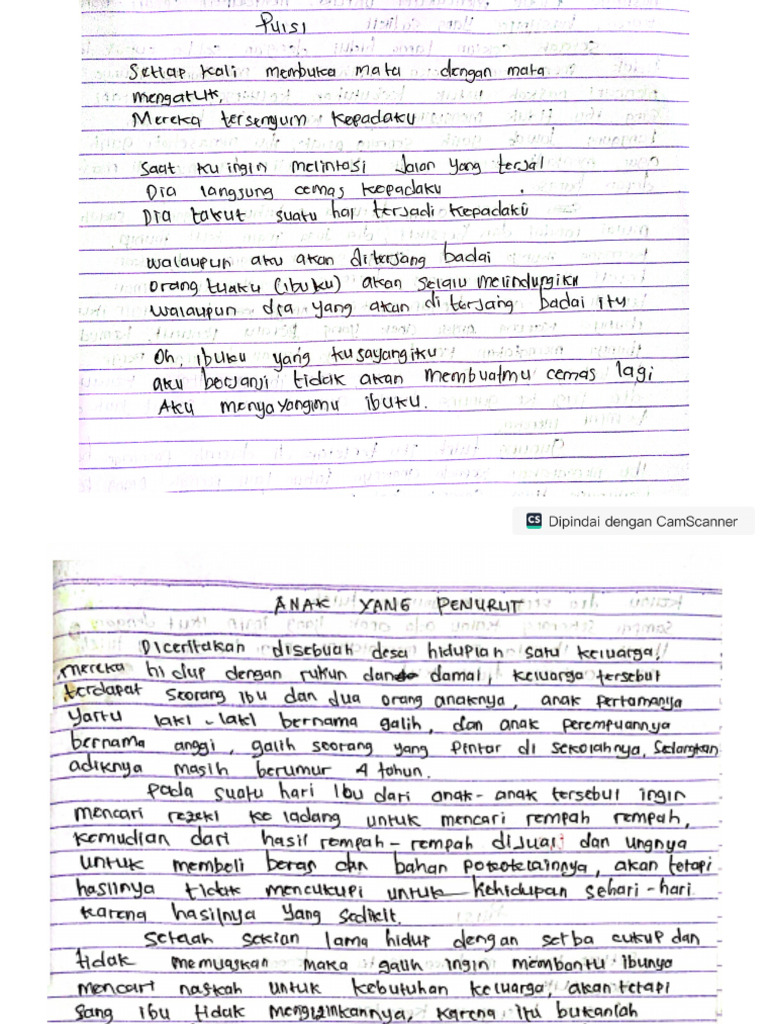 Puisi
Setiap kali membuka mata dengan mata
mengatuk,
Mereka tersenyum kepadaku
Saat ku ingin melintasi Jalan yang terjal
Dia langsung cemas kepadaku
Dia takut suatu hal terjadi kepadaku
walaupun aku akan diterjang badai
orang tuaku (ibuku) akan selalu melindungiku
walaupun dia yang akan di terjang badai itu
Oh, ibuku yang kusayangiku
aku berjanji tidak akan membuatmu cemas lagi
Aku menyayangimu ibuku.
CS Dipindai dengan CamScanner
ANAK YANG PENURUT
Diceritakah disebuah desa hiduplah satu keluarga,
mereka hidup dengan rukun dan damai, keluarga tersebut
terdapat seorang ibu dan dua orang anaknya, anak pertamanya
yaitu laki-laki bernama galih, dan anak perempuannya
bernama anggi, galih seorang yang pintar di sekolahnya, sedangkan
adiknya masih berumur 4 tahun.
pada suatu hari Ibu dari anak-anak tersebut ingin
mencari rezeki ke ladang untuk mencari rempah rempah,
kemudian dari hasil rempah-rempah dijual dan ungnya
untuk membeli beras dan bahan pokok lainnya, akan tetapi
hasilnya tidak mencukupi untuk kehidupan sehari-hari
karena hasilnya yang sedikit.
Setelah sekian lama hidup dengan serba cukup dan
tidak memuaskan maka galih ingin membantu ibunya
mencari nafkah untuk kebutuhan keluarga, akan tetapi
sang ibu tidak mengizinkannya, karena itu bukanlah